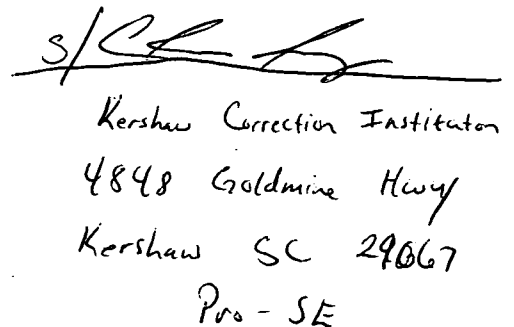 s/
Kershaw Correction Institution
4848 Goldmine Hwy
Kershaw SC 29067
Pro-SE